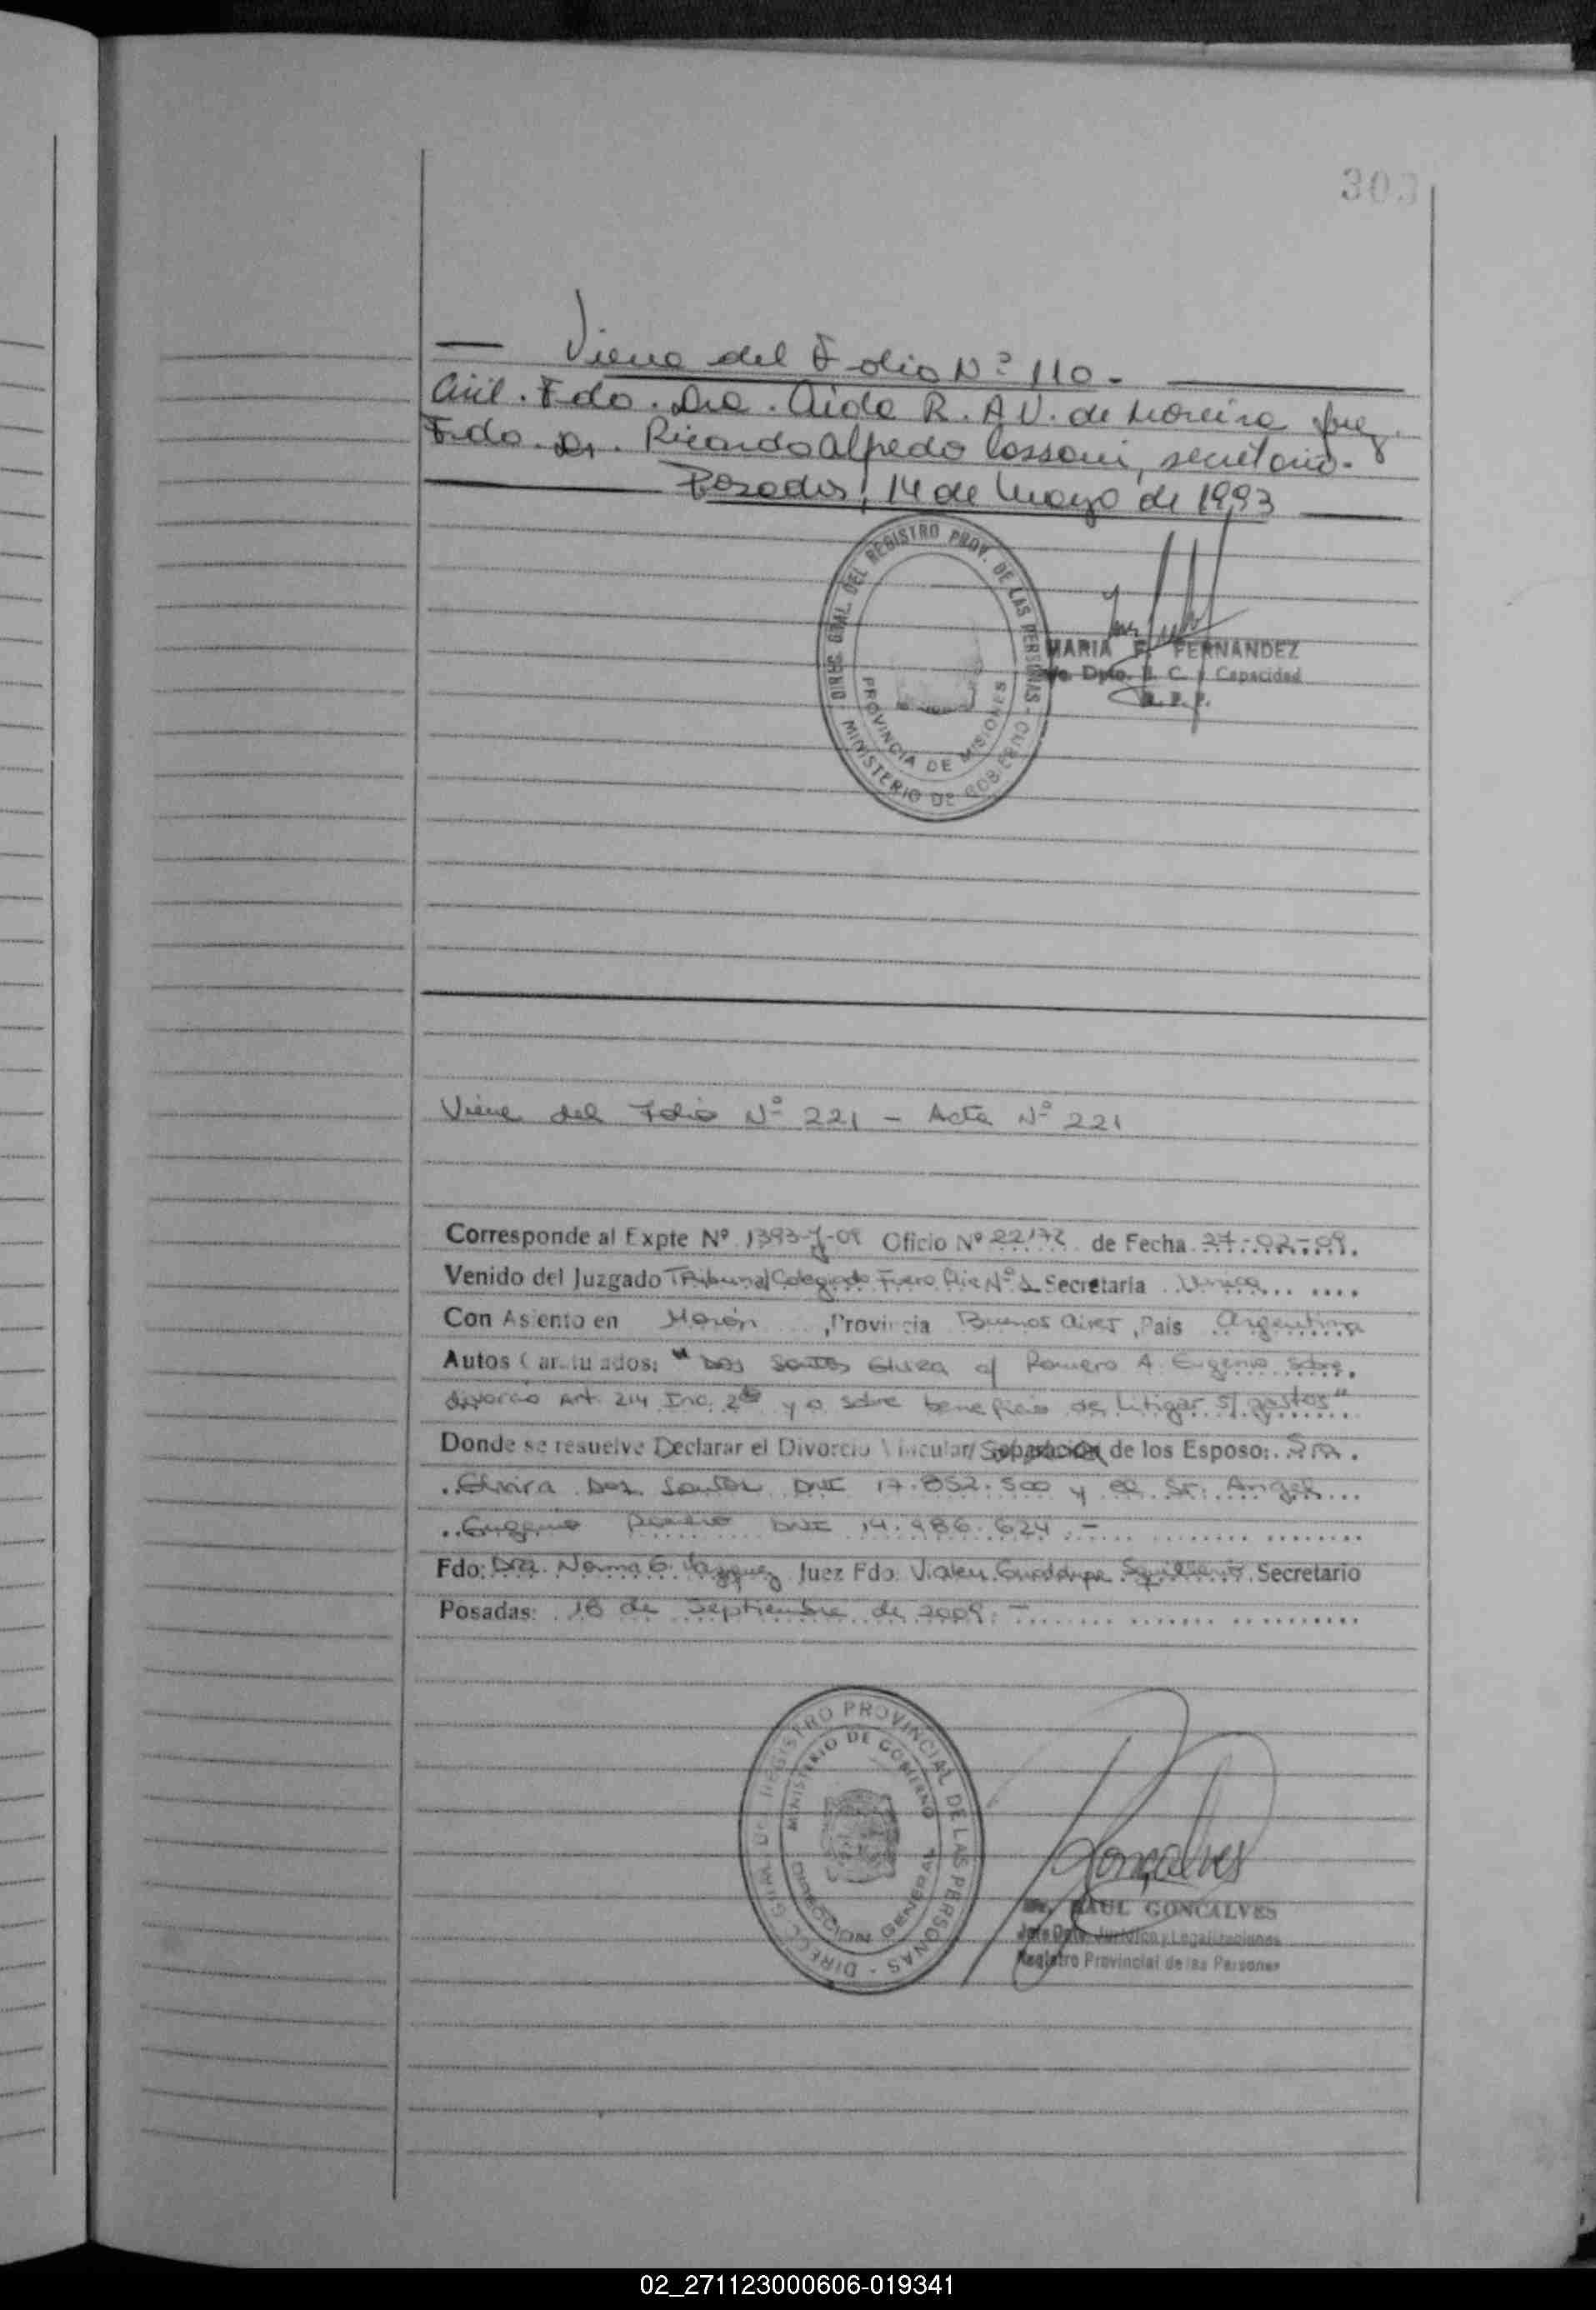 303
Viene del Folio Nº 110 -
Civil. Fdo. Dra. Aida R. A V. de Moreira Juez.
Fdo. Dr. Ricardo Alfredo Cassoni, secretario.
Posadas, 14 de Mayo de 1993
DIREC. GRAL. DEL REGISTRO PROV. DE LAS PERSONAS -
MINISTERIO DE GOBIERNO
PROVINCIA DE MISIONES
MARIA F. FERNANDEZ
Dpto. E. C. y Capacidad
R. P. P.
Viene del Folio Nº 221 - Acta Nº 221
Corresponde al Expte Nº 1393-J-09 Oficio Nº 22172 de Fecha 27-02-09.
Venido del Juzgado Tribunal Colegiado Fuero Flia Nº 1 Secretaria Unica
Con Asiento en Morón, Provincia Buenos Aires, Pais Argentina
Autos Caratulados: " Dos Santos Elvira c/ Romero A. Eugenio sobre
divorcio Art. 214 Inc. 2do y o sobre beneficio de Litigar s/ gastos"
Donde se resuelve Declarar el Divorcio Vincular/Separación de los Esposo: Sra.
Elvira Dos Santos DNI 17.852.500 y el Sr. Angel
Eugenio Romero DNI 14.986.624 -
Fdo: Dra. Norma G. Vazquez Juez Fdo. Guadalupe Secretario
Posadas: 18 de Septiembre de 2009. -
DIREC. GRAL. DEL REGISTRO PROVINCIAL DE LAS PERSONAS -
MINISTERIO DE GOBIERNO
DIRECCION GENERAL
Goncalves
RAUL GONCALVES
Jefe Dpto. Jurídico y Legalizaciones
Registro Provincial de las Personas
02_271123000606-019341